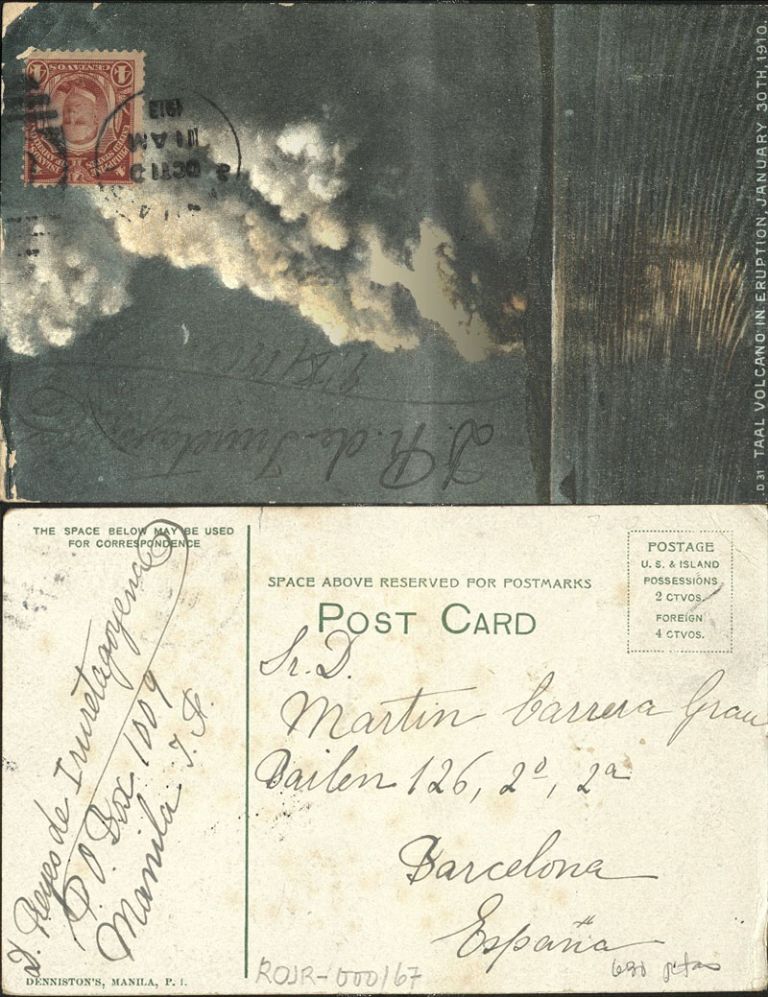 4 CENTAVOS 4
PHILIPPINE ISLANDS
UNITED STATES OF AMERICA
OCT 10
11 AM
1913
D 31 TAAL VOLCANO IN ERUPTION, JANUARY 30TH, 1910.
THE SPACE BELOW MAY BE USED
FOR CORRESPONDENCE
D. Reyes de Iruretagoyena
P.O. Box 1009
Manila I. F.
DENNISTON'S, MANILA, P. I.
SPACE ABOVE RESERVED FOR POSTMARKS
POST CARD
POSTAGE
U. S. & ISLAND
POSSESSIONS
2 CTVOS.
FOREIGN
4 CTVOS.
Sr. D.
Martin Carrera Grau
Bailen 126, 2º, 2ª
Barcelona
España
ROJR-000167